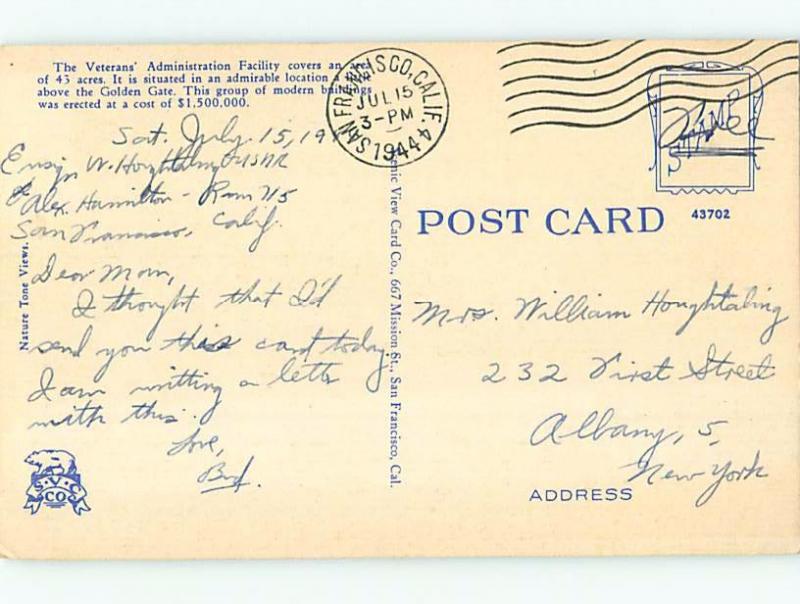 The Veterans' Administration Facility covers an area
of 43 acres. It is situated in an admirable location
above the Golden Gate. This group of modern buildings
was erected at a cost of $1,500,000.
SAN FRANCISCO, CALIF. 4
JUL 15
3-PM
1944
STAMP
Free
Sat. July 15, 19
Ensign W. Houghtaling USNR
Alex. Hamilton - Room 715
San Francisco, Calif.
Dear Mom,
I thought that I'd
send you this card today
I am writing a letter
with this.
Love,
Bud.
Nature Tone Views.
S.V.C
CO
Scenic View Card Co., 667 Mission St., San Francisco, Cal.
POST CARD
43702
Mrs. William Houghtaling
232 First Street
Albany, 5,
New York
ADDRESS